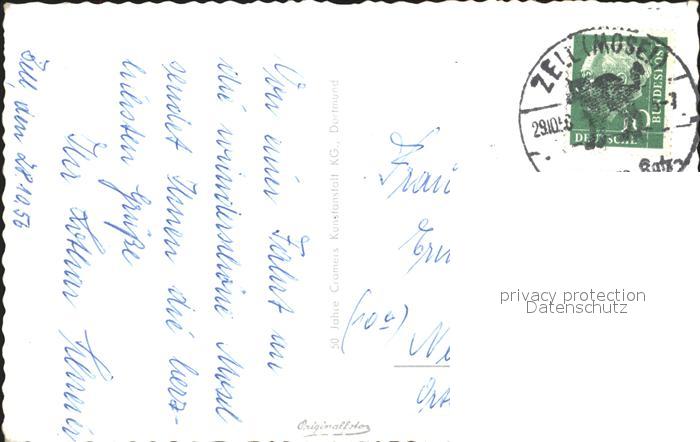 Zell, den 28.10.56
Von einer Fahrt an
die wunderschöne Mosel
sendet Ihnen die herz-
lichsten Grüße
Ihr Lothar
50 Jahre Cramers Kunstanstalt KG., Dortmund
Frau
(10a)
Originalfoto
ZELL (MOSEL)
29.10.5
DEUTSCHE
BUNDESPOST
10
privacy protection
Datenschutz